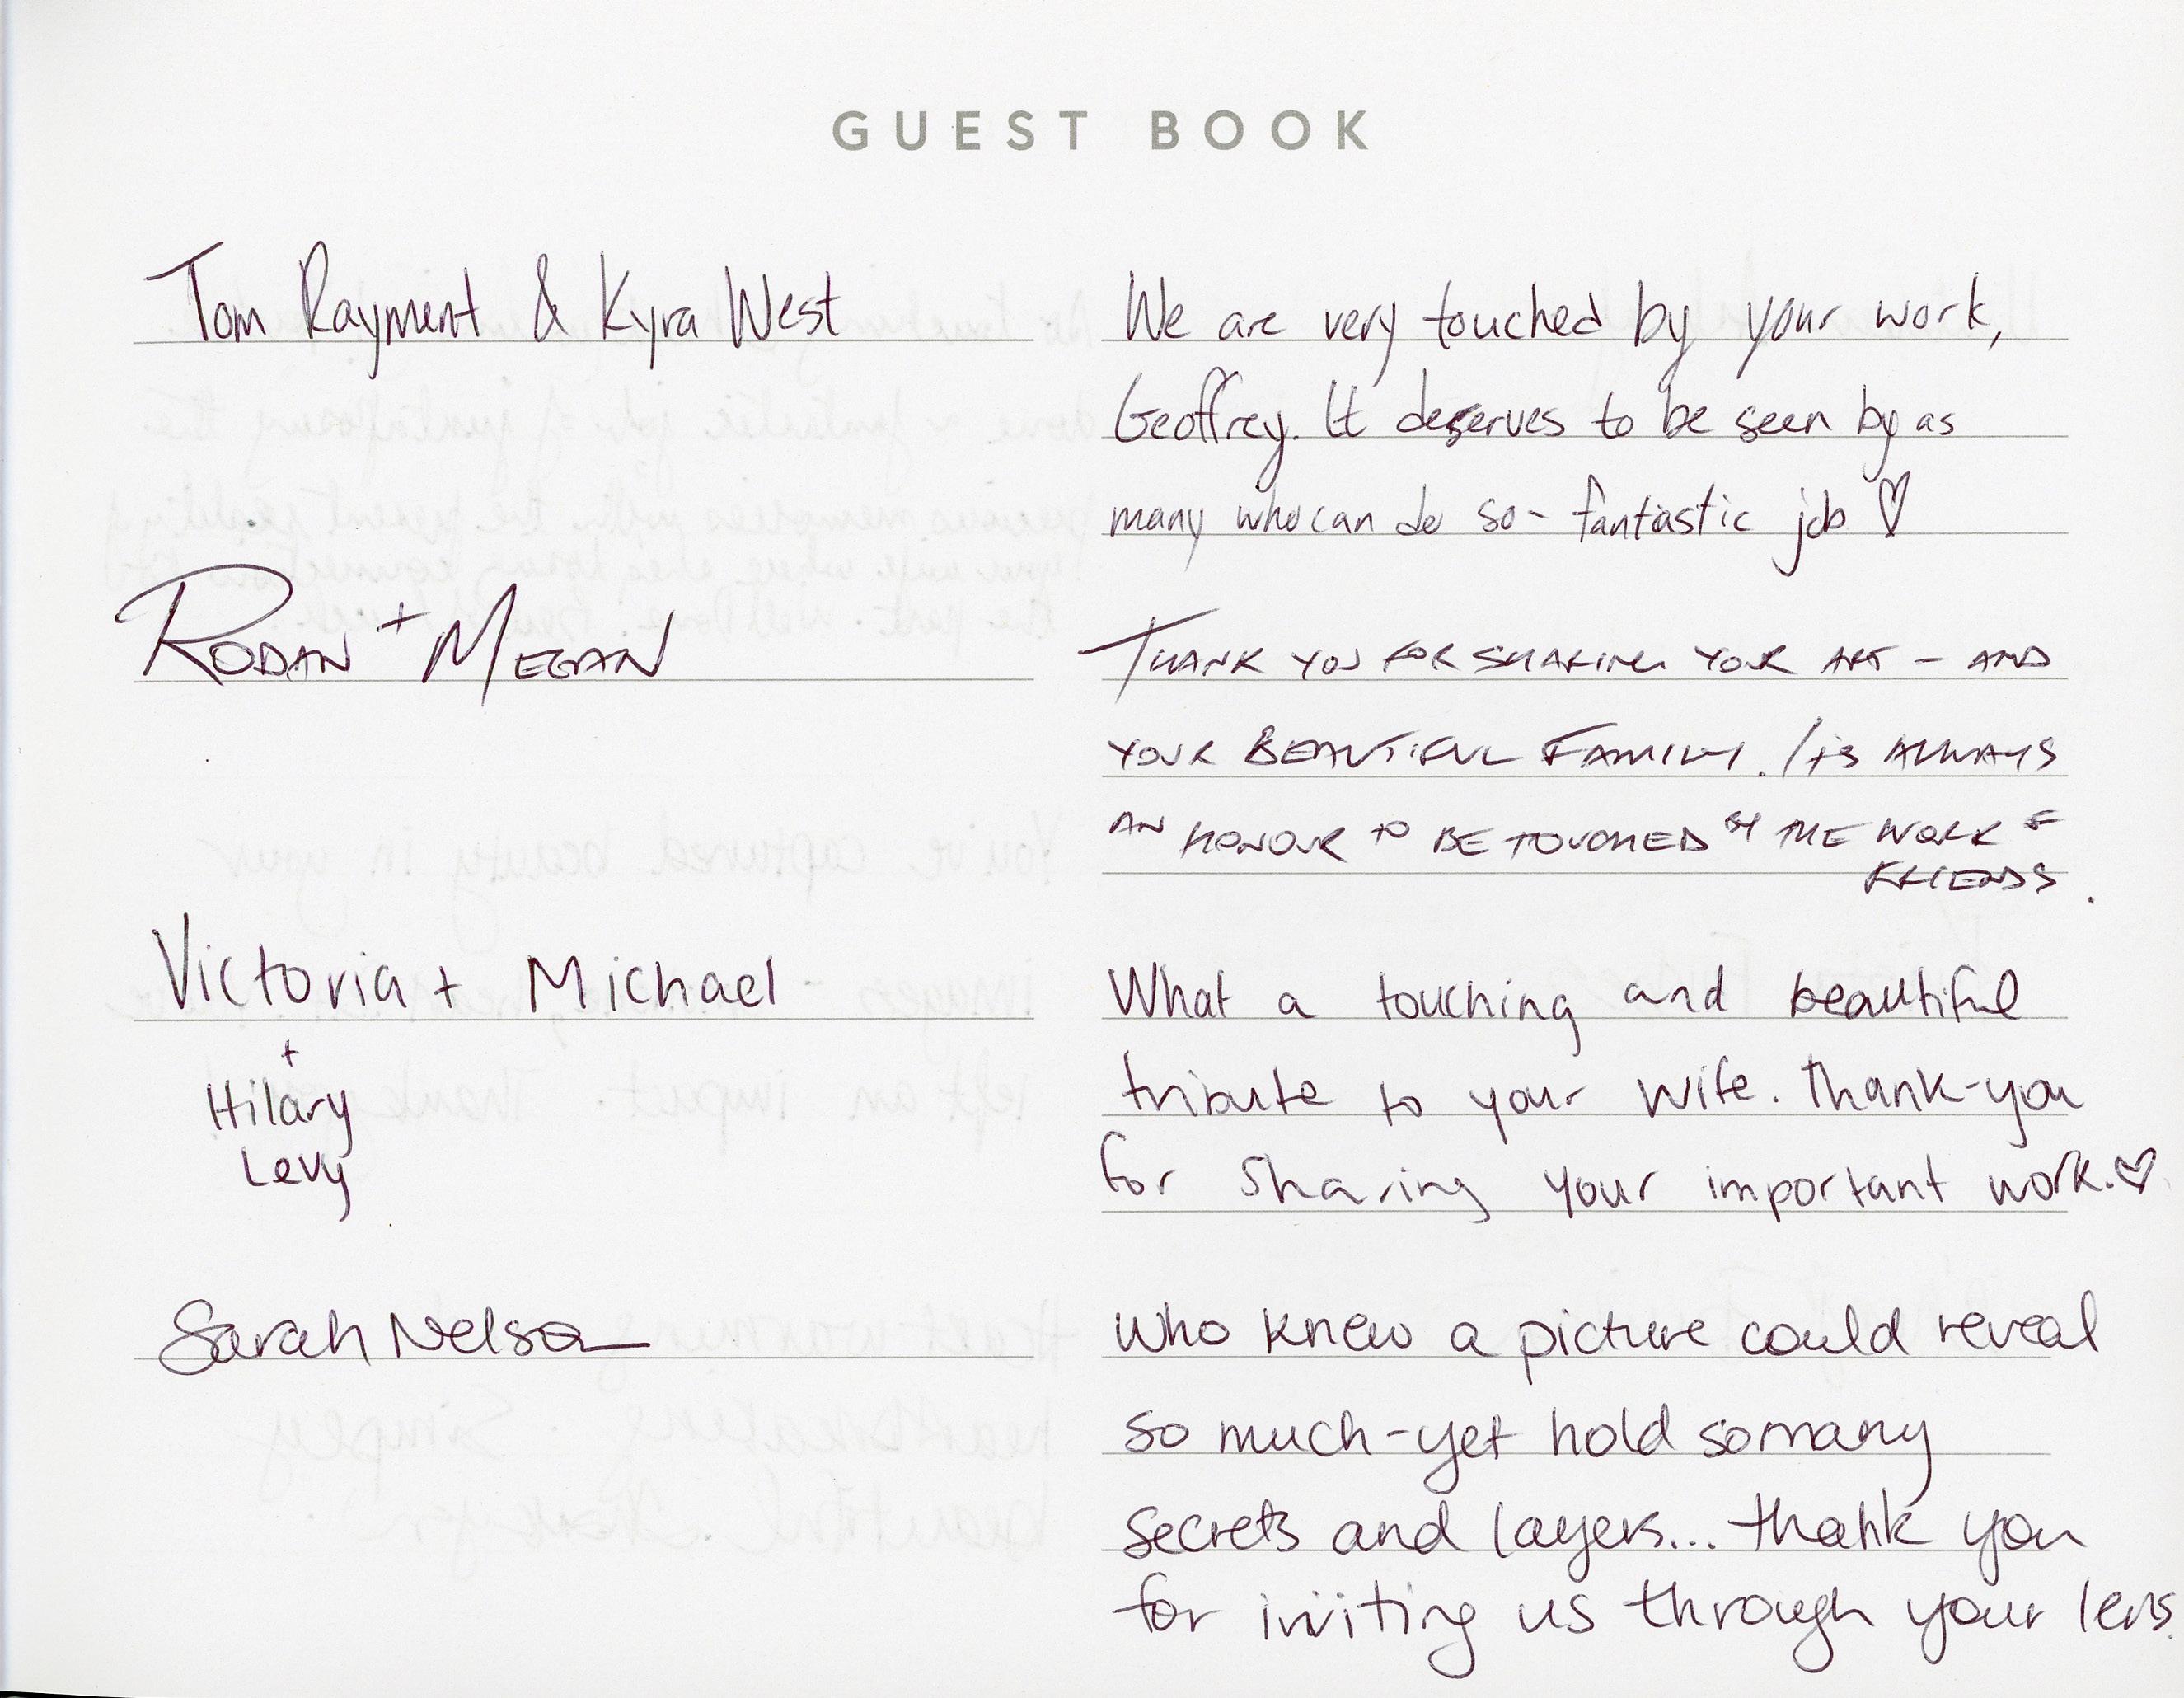 GUEST BOOK
Tom Rayment & Kyra West
We are very touched by your work,
Geoffrey. It deserves to be seen by as
many who can do so - fantastic job ♡
RODAN + MEGAN
THANK YOU FOR SHARING YOUR ART - AND
YOUR BEAUTIFUL FAMILY. ITS ALWAYS
AN HONOUR TO BE TOUCHED BY THE WORK OF
FRIENDS.
Victoria + Michael
+
Hilary
Levy
What a touching and beautiful
tribute to your wife. Thank-you
for sharing your important work. ♡
Sarah Nelson
Who knew a picture could reveal
so much - yet hold so many
secrets and layers... thank you
for inviting us through your lens.